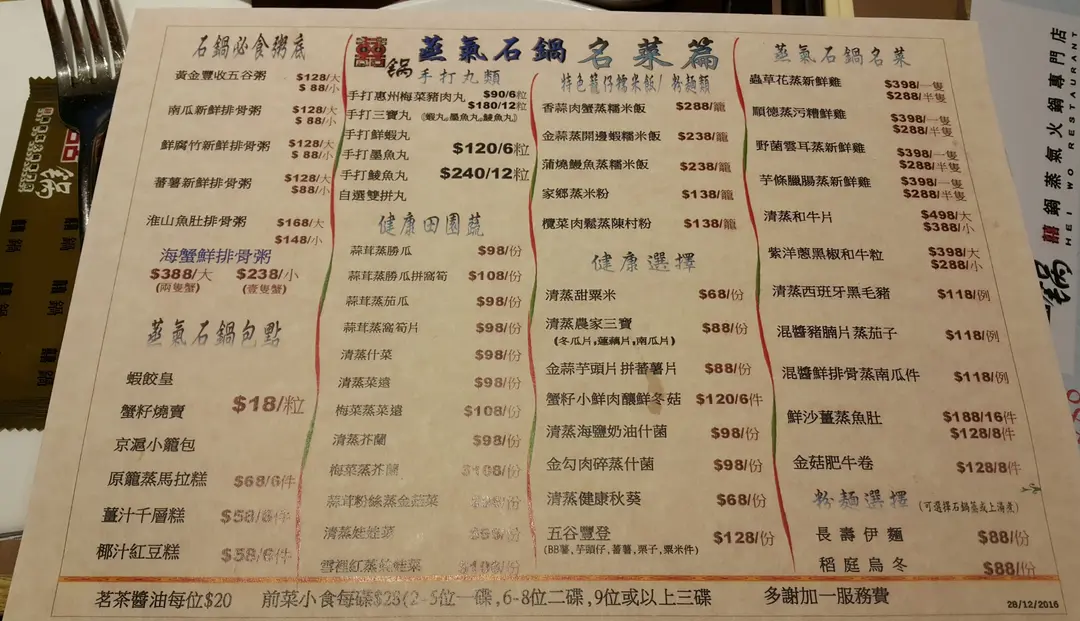 石鍋必食粥底
黃金豐收五谷粥 $128/大
$ 88/小
南瓜新鮮排骨粥 $128/大
$ 88/小
鮮腐竹新鮮排骨粥 $128/大
$ 88/小
蕃薯新鮮排骨粥 $128/大
$88/小
淮山魚肚排骨粥 $168/大
$148/小
海蟹鮮排骨粥
$388/大 $238/小
(兩隻蟹) (壹隻蟹)
蒸氣石鍋包點
蝦餃皇
蟹籽燒賣 $18/粒
京滬小籠包
原籠蒸馬拉糕 $68/6件
薑汁千層糕 $58/6件
椰汁紅豆糕 $58/6件
囍鍋 蒸氣石鍋 名菜篇
手打丸類
手打惠州梅菜豬肉丸 $90/6粒
$180/12粒
手打三寶丸 (蝦丸,墨魚丸,鯪魚丸)
手打鮮蝦丸
手打墨魚丸 $120/6粒
手打鯪魚丸 $240/12粒
自選雙拼丸
健康田園蔬
蒜茸蒸勝瓜 $98/份
蒜茸蒸勝瓜拼萵筍 $108/份
蒜茸蒸茄瓜 $98/份
蒜茸蒸萵筍片 $98/份
清蒸什菜 $98/份
清蒸菜遠 $98/份
梅菜蒸菜遠 $108/份
清蒸芥蘭 $98/份
梅菜蒸芥蘭 $108/份
蒜茸粉絲蒸金菇菜 /份
清蒸娃娃菜 /份
雪裡紅蒸 娃菜 /份
特色籠仔糯米飯/粉麵類
香蒜肉蟹蒸糯米飯 $288/籠
金蒜蒸開邊蝦糯米飯 $238/籠
蒲燒饅魚蒸糯米飯 $238/籠
家鄉蒸米粉 $138/籠
欖菜肉鬆蒸陳村粉 $138/籠
健康選擇
清蒸甜粟米 $68/份
清蒸農家三寶 $88/份
(冬瓜片,蓮藕片,南瓜片)
金蒜芋頭片拼蕃薯片 $88/份
蟹籽小鮮肉釀鮮冬菇 $120/6件
清蒸海鹽奶油什菌 $98/份
金勾肉碎蒸什菌 $98/份
清蒸健康秋葵 $68/份
五谷豐登 $128/份
(BB薯,芋頭仔,蕃薯,栗子,粟米件)
蒸氣石鍋名菜
蟲草花蒸新鮮雞 $398/一隻
$288/半隻
順德蒸污糟鮮雞 $398/一隻
$288/半隻
野菌雲耳蒸新鮮雞 $398/一隻
$288/半隻
芋條臘腸蒸新鮮雞 $398/一隻
$288/半隻
清蒸和牛片 $498/大
$388/小
紫洋蔥黑椒和牛粒 $398/大
$288/小
清蒸西班牙黑毛豬 $118/例
混醬豬腩片蒸茄子 $118/例
混醬鮮排骨蒸南瓜件 $118/例
鮮沙薑蒸魚肚 $188/16件
$128/8件
金菇肥牛卷 $128/8件
粉麵選擇 (可選擇石鍋蒸或上湯煮)
長壽伊麵 $88/份
稻庭烏冬 $88/份
茗茶醬油每位$20 前菜小食每碟$28(2-5位一碟,6-8位二碟,9位或以上三碟 多謝加一服務費
28/12/2016
囍鍋蒸氣火鍋專門店
HEI WO RESTAURANT
鍋